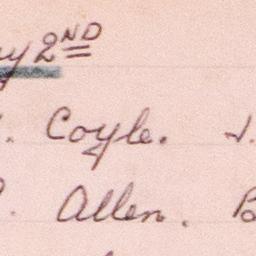 y 2ND
. Coyle. J.
. Allen. B